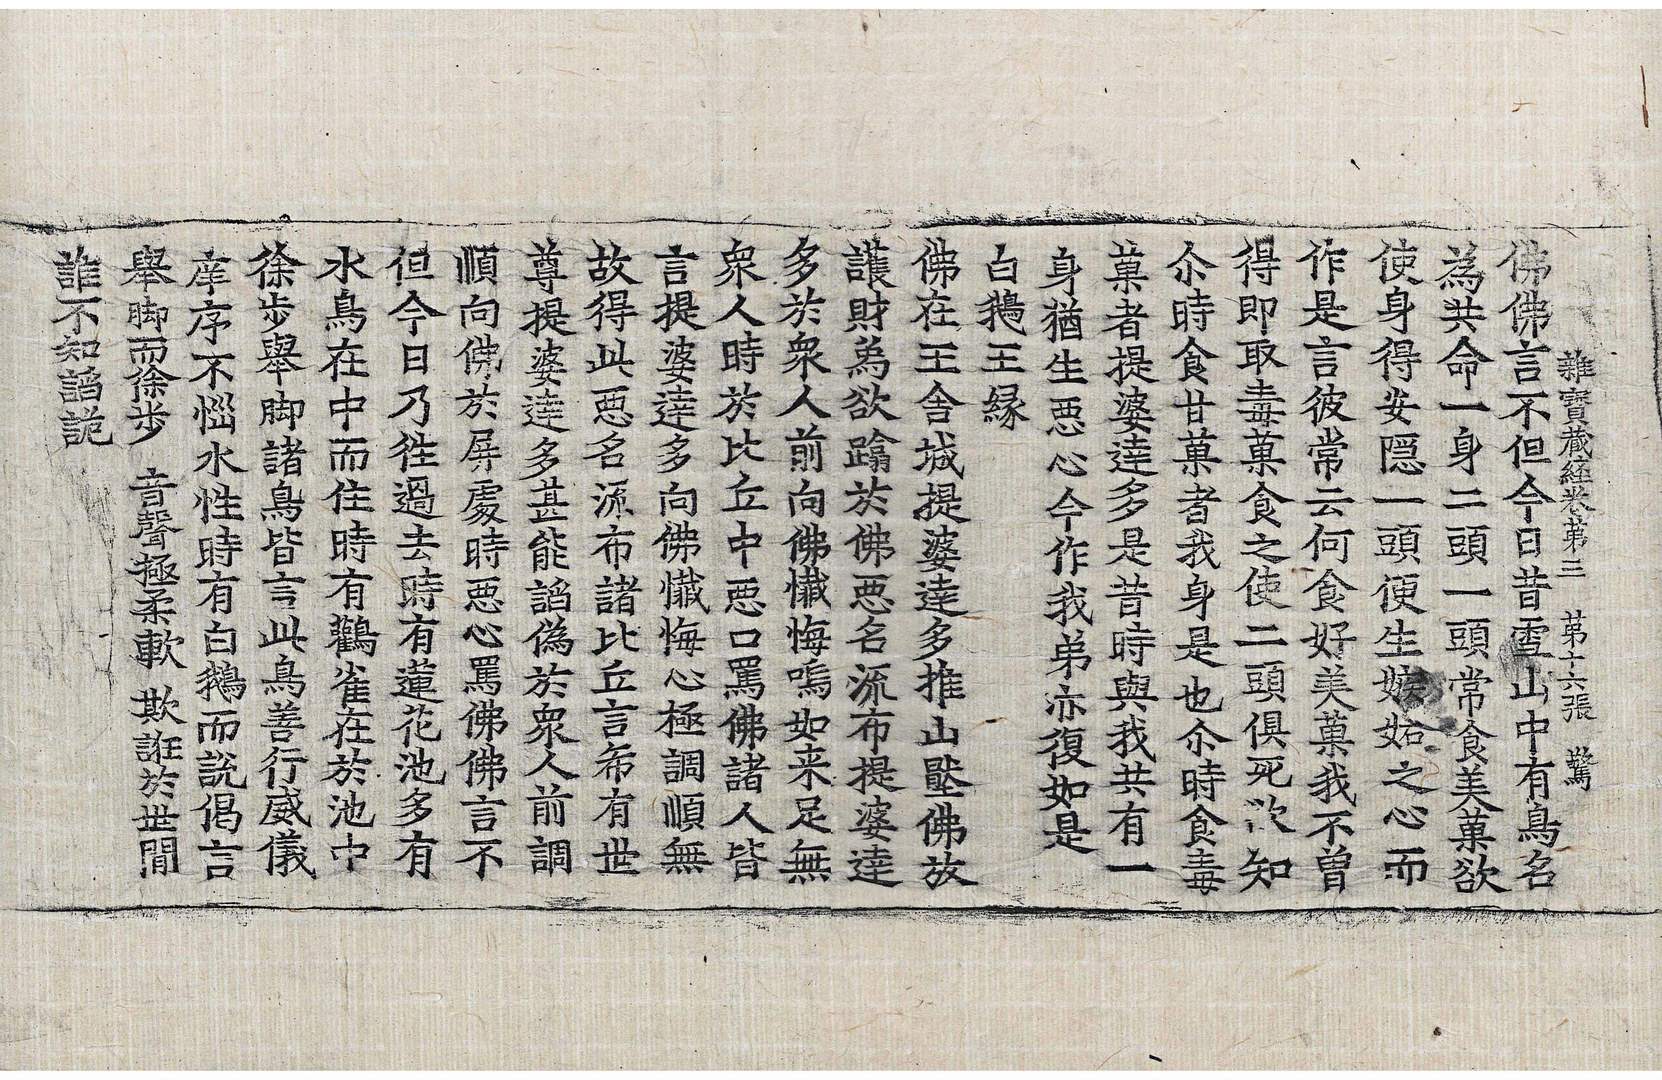 雜寶藏經卷第三　第十六張　驚
佛佛言不但今日昔雪山中有鳥名
為共命一身二頭一頭常食美菓欲
使身得安隱一頭便生嫉妬之心而
作是言彼常云何食好美菓我不曽
得即取毒菓食之使二頭俱死欲知
尒時食甘菓者我身是也尒時食毒
菓者提婆達多是昔時與我共有一
身猶生惡心今作我弟亦復如是
白鵝王緣
佛在王舍城提婆達多推山壓佛放
護財為欲蹋於佛惡名流布提婆達
多於衆人前向佛懺悔嗚如来足無
衆人時於比丘中惡口罵佛諸人皆
言提婆達多向佛懺悔心極調順無
故得此惡名流布諸比丘言希有世
尊提婆達多甚能謟偽於衆人前調
順向佛於屏處時惡心罵佛佛言不
但今日乃徃過去時有蓮花池多有
水鳥在中而住時有鸛雀在於池中
徐步舉脚諸鳥皆言此鳥善行威儀
庠序不惱水性時有白鵝而說偈言
舉脚而徐步　音聲極柔軟　欺誑於世閒
誰不知謟諂